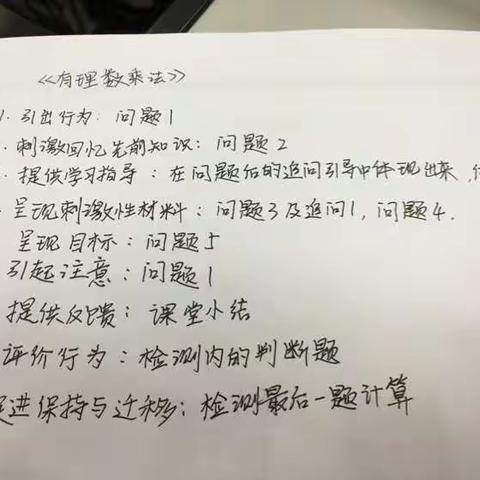 《有理数乘法》
1. 引出行为: 问题1
. 刺激回忆先前知识: 问题2
. 提供学习指导: 在问题后的追问引导中体现出来,
. 呈现刺激性材料: 问题3及追问1, 问题4.
呈现目标: 问题5
引起注意: 问题1
提供反馈: 课堂小结
评价行为: 检测内的判断题
进保持与迁移: 检测最后一题计算